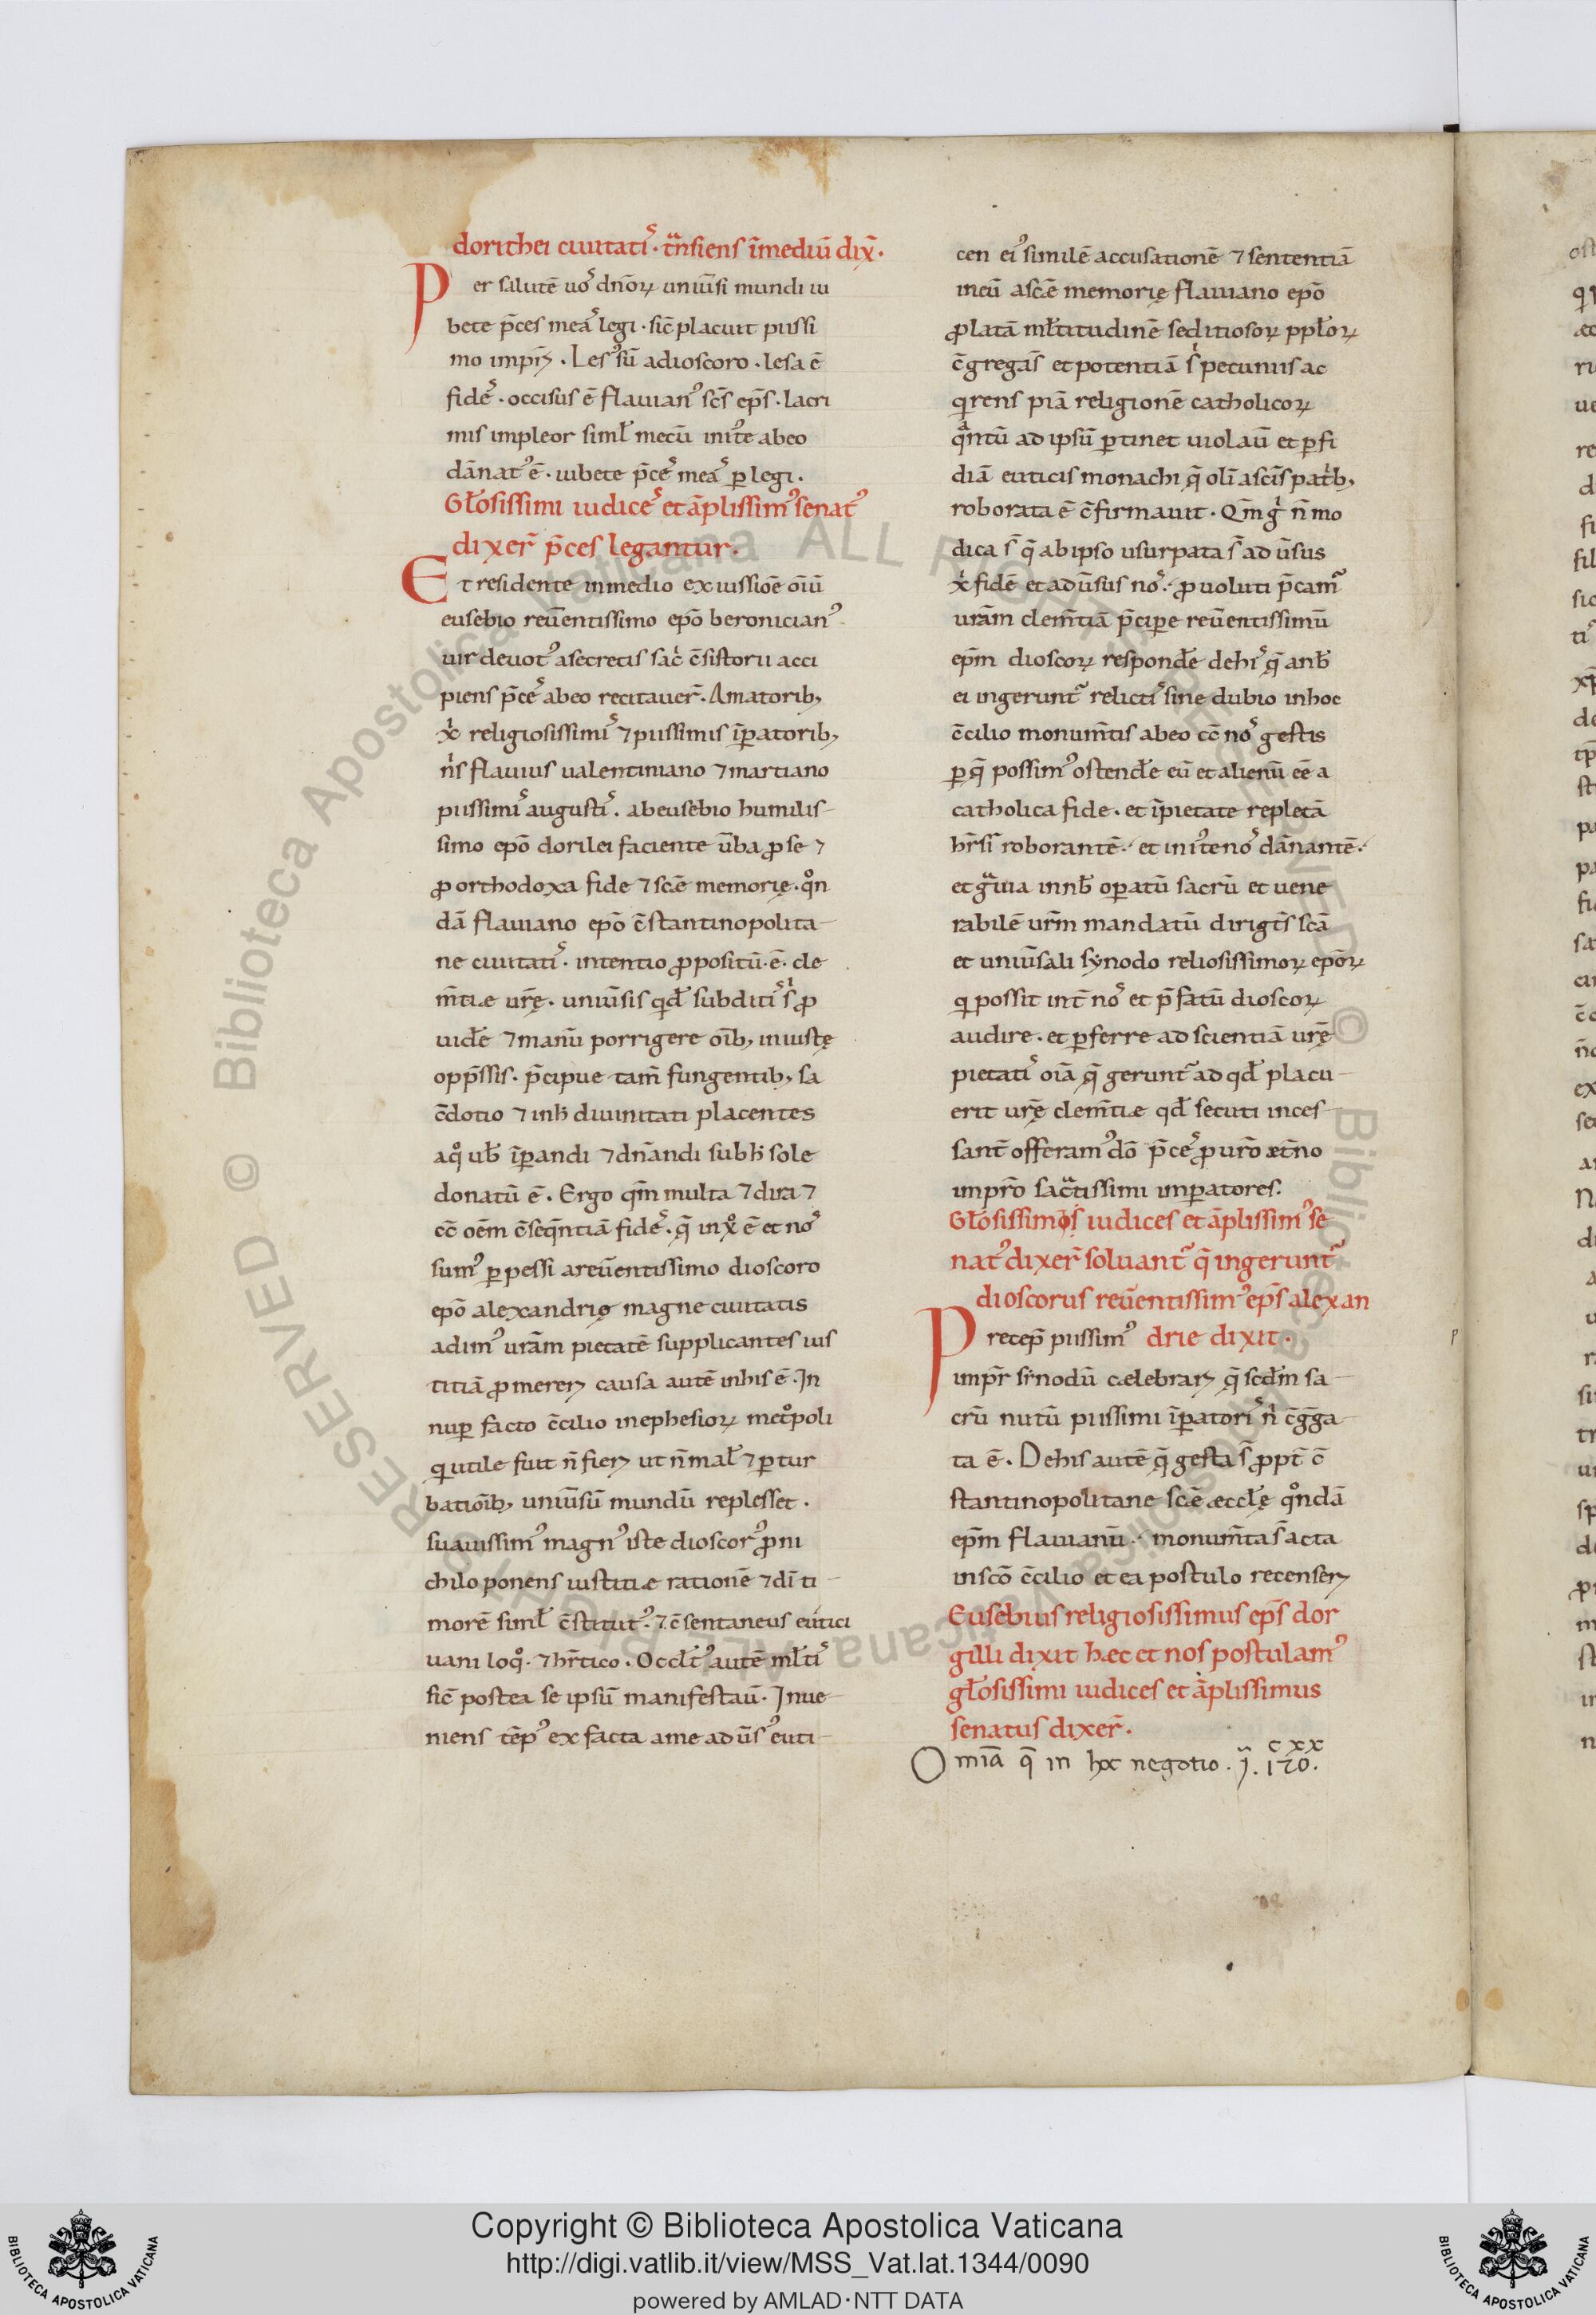 dorithei ciuitatiſ̉. t̄nſiens īmediū dix̄.
Per ſalutē uoſ̉ dn̄oꝝ uniūſi mundi iu
bete p̄ces meaſ̉ legi. ſic̄ placuit piiſſi
mo impiꝝ. Leſ᾿ ſū adioſcoro. leſa ē
fideſ̉. occiſus ē flauian᾿ ſc̄s ep̄s. lacri
mis impleor ſiml̄ mecū iniꝰte abeo
dānatꝰ ē. iubete p̄ceſ̉ meaſ̉ ꝑlegi.
Gl̄oſiſſimi iudiceſ̉ et āpliſſimꝰ ſenatꝰ
dixer̄ p̄ces legantur.
Et reſidente inmedio exiuſſiōe oīū
euſebio reūentiſſimo ep̄o beronicianꝰ
uir deuotꝰ aſecretis ſac̄ c̄ſiſtorii acci
piens p̄ceſ̉ abeo recitauer̄. Amatorib,
xi̇ religioſiſſimiſ̉ ⁊ piiſſimis īꝑatorib,
n̄is flauius ualentiniano ⁊ martiano
piiſſimiſ̉ auguſtiſ̉. abeuſebio humilis-
ſimo ep̄o dorilei faciente ūba ꝓ ſe ⁊
ꝓ orthodoxa fide ⁊ ſcē memorię. qn̊
dā flauiano ep̄o c̄ſtantinopolita-
ne ciuitatiſ̉. intentio ꝓpoſitū. ē. cle
m̄tiæ urę̄. uniūſis qd̄ ſubditiſ̉ ſ̄ ꝓ
uidē ⁊ manū porrigere oīb, iniuſtę
opp̄ſſis. p̄cipue tam̄ fungentib, ſa
c̄dotio ⁊ inh̄ diuinitati placentes
aq̊ ub̄ īꝑandi ⁊ dn̄andi ſubh̄ ſole
donatū ē. Ergo qm̄ multa ⁊ dira ⁊
cc̄ oēm c̄ſeq̄ntiā fideſ̉. q̄ inxo̊ ē et noſ̉
ſumꝰ ꝑpeſſi areūentiſſimo dioſcoro
ep̄o alexandrię magne ciuitatis
adimꝰ urām pietatē ſupplicantes iuſ
titiā ꝓmereꝝ cauſa autē inhis ē. In
nuꝑ facto c̄cilio inepheſioꝝ met̊poli
q utile fuit n̄ fieꝝ ut n̄ mal̄ ⁊ ꝑtur
batioīb, uniūſū mundū repleſſet.
ſuauiſſimꝰ magnꝰ iſte dioſcorꝰ ꝓni
chilo ponens iuſtitiæ rationē ⁊ dī ti-
morē ſiml̄ c̄ſtitutꝰ. ⁊ c̄ſentaneus eutici
uani loq̊. ⁊ hr̄tico. Occl̄tꝰ autē ml̄tiſ̉
ſic̄ poſtea ſe ipſū manifeſtaū. Inue-
niens tēpꝰ ex facta ame ad ūſꝰ euti-
cen eiꝰ ſimilē accuſationē ⁊ ſententiā
incū aſcæ memorię flauiano ep̄o
ꝓlatā ml̄titudinē ſeditioſoꝝ ppl̄oꝝ
c̄gregaſ̄ et potentiā ſ̄ pecuniis ac
qrens piā religionē catholicoꝝ
qntū ad ipſū ꝑtinet uiolaū et ꝑfi
diā euticis monachi q̄ olī aſcīs patb,
roborata ē c̄firmauit. Qm̄ g̊ n̄ mo
dica ſ̄ q̄ ab ipſo uſurpata ſ̄ ad ūſus
xi̇ fidē et ad ūſus noſ̉. ꝓuoluti p̄camꝰ
urām clem̄tiā p̄ciꝑe reūentiſſimū
ep̄m dioſcoꝝ reſpondē dehiſ̉ q̄ anb̄
ei ingerunt̉ relictiſ̉ ſine dubio inhoc
c̄cilio monum̄tis abeo cc̄ noſ̉ geſtis
ꝑ q̄ poſſimꝰ oſtendē eū et alienū eē a
catholica fide. et īpietate repletā
hr̄ſī roborantē. et iniꝰte noſ̉ dānantē.
et gͣuia innb̄ oꝑatū ſacrū et uene
rabilē urm̄ mandatū dirigīs ſcā
et uniūſali ſynodo relioſiſſimoꝝ ep̄oꝝ
q poſſit int̄ noſ̉ et p̄fatū dioſcoꝝ
audire. et ꝑferre ad ſcientiā urę̄
pietatiſ̉ oīa q̄ gerunt̉ ad qd̄ placu-
erit urę̄ clem̄tiæ qd̄ ſecuti inceſ-
ſant̄ offeramꝰ dō p̄ceſ̉ ꝓ urō æt̄no
impr̄o ſac̄tiſſimi imꝑatores.
Gl̄oſiſſimoſ iudices et āpliſſimꝰ ſe
natꝰ dixer̄ ſoluant̉ q̄ ingerunt̉
dioſcorus reūentiſſimꝰ ep̄s alexan
Precep̄ piiſſimꝰ drie dixit.
impr̄ ſinodū cælebraꝝ q̄ ſcd̄m ſa-
crū nutū piiſſimi īꝑatoriſ̉ n̄i c̄gḡa-
ta ē. Dehis autē q̄ geſta ſ̄ ꝓpt̄ c̄
ſtantinopolitane ſcæ æccl̄ę qn̊dā
ep̄m flauianū. monum̄ta ſ̄ acta
inſcō c̄cilio et ea poſtulo recenſeꝝ
Euſebius religioſiſſimus ep̄s dor
gilli dixit hæc et nos poſtulamꝰ
gl̄oſiſſimi iudices et āpliſſimus
ſenatus dixer̄.
cxx
Omīa q̄ in hoc negotio. ĵ. 120.
Copyright © Biblioteca Apostolica Vaticana
http://digi.vatlib.it/view/MSS_Vat.lat.1344/0090
powered by AMLAD·NTT DATA
BIBLIOTECA APOSTOLICA VATICANA
BIBLIOTECA APOSTOLICA VATICANA